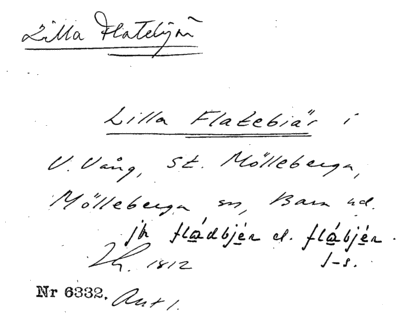 Lilla Flatebjär
Lilla Flatebiär i
V. Vång, St. Mölleberga,
Mölleberga sn, Bara hd.
fládbjér el. flábjér.
1812
Nr 6332.